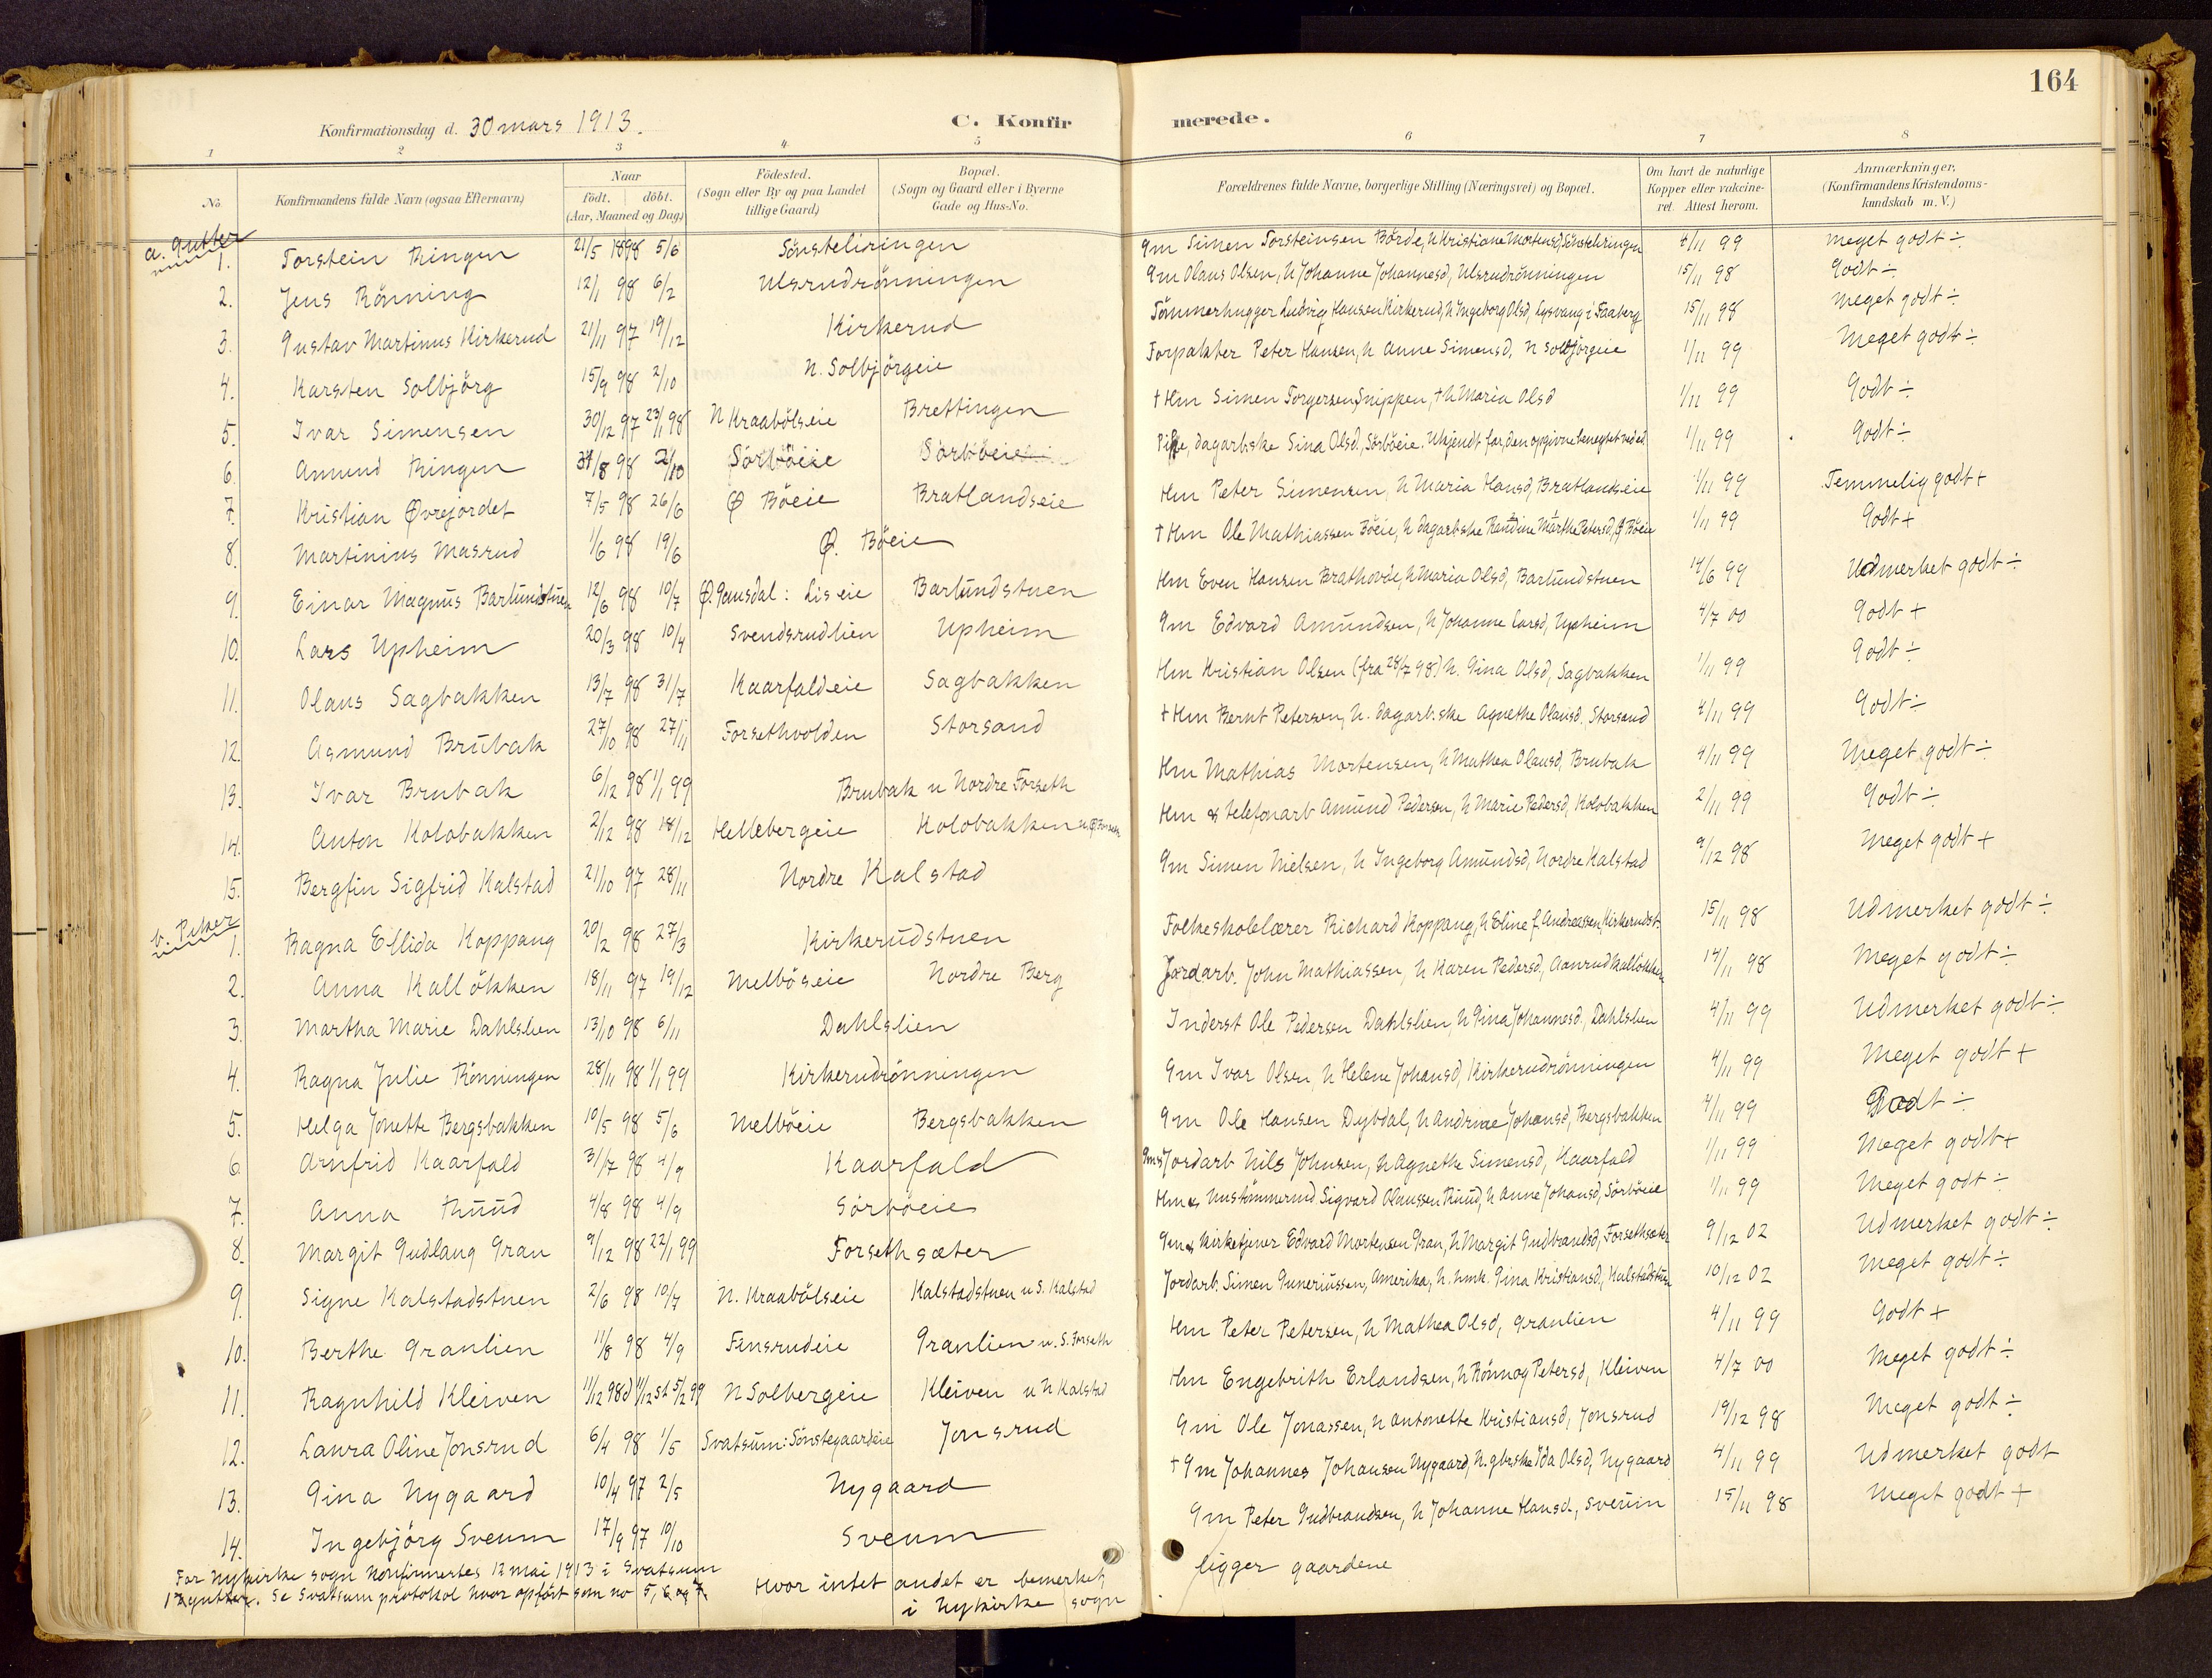 164
Konfirmationsdag d. 30 mars 1913.
C. Konfirmerede.
1 2 3 4 5 6 7 8
No. Konfirmandens fulde Navn (ogsaa Efternavn) Naar født. døbt. (Aar, Maaned og Dag) Fødested. (Sogn eller By og paa Landet tillige Gaard) Bopæl. (Sogn og Gaard eller i Byerne Gade og Hus-No. Forældrenes fulde Navne, borgerlige Stilling (Næringsvei) og Bopæl. Om havt de naturlige Kopper eller vakcineret. Attest herom. Anmærkninger. (Konfirmandens Kristendomskundskab m. V.)
a. Gutter
1. Torstein Ringen 21/5 1898 5/6 Sönsteliringen Gm Simen Torsteinsen Börde, h Kristiane Mortensd, Sönsteliringen 4/11 99 Meget godt ÷
2. Jens Rönning 12/1 98 6/2 Ulsrudrönningen Gm Olaus Olsen, h Johanne Johannesd, Ulsrudrönningen 15/11 98 Godt ÷
3. Gustav Martinus Kirkerud 21/11 97 19/12 Kirkerud Tömmerhugger Ludvig Hansen Kirkerud, h Ingeborg Olsd, Lysvang i Faaberg 15/11 98 Meget godt ÷
4. Karsten Solbjörg 15/9 98 2/10 N. Solbjörgeie Forpakter Peter Hansen, h Anne Simensd, N Solbjörgeie 1/11 99 Meget godt ÷
5. Ivar Simensen 30/12 97 23/1 98 N Kraabölseie Brettingen † Hm Simen Torgersen Snippen, † h Maria Olsd 1/11 99 Godt ÷
6. Amund Ringen 31/8 98 2/10 Sörböeie Sörböeie Pike, dagarb.ske Sina Olsd, Sörböeie. Ukjendt far, den opgivne benegtet ved ed. 1/11 99 Godt ÷
7. Kristian Øvrejordet 7/5 98 26/6 Ø Böeie Bratlandseie Hm Peter Simensen, h Maria Hansd, Bratlandseie 1/11 99 Temmelig godt +
8. Martinius Masrud 1/6 98 19/6 Ø. Böeie † Hm Ole Mathiassen Böeie, h dagarbske Randine Marthe Petersd, Ø Böeie 1/11 99 Godt +
9. Einar Magnus Barlundstuen 12/6 98 10/7 Ø. Gausdal: Liseie Barlundstuen Hm Even Hansen Brathovde, h Maria Olsd, Barlundstuen 14/6 99 Udmerket godt ÷
10. Lars Upheim 20/3 98 10/4 Svendsrudlien Upheim Gm Edvard Amundsen, h Johanne Larsd, Upheim 4/7 00 Godt +
11. Olaus Sagbakken 13/7 98 31/7 Kaarfaldeie Sagbakken Hm Kristian Olsen (fra 28/7 98) h. Gina Olsd, Sagbakken 1/11 99 Godt ÷
12. Asmund Brubak 27/10 98 27/11 Forsethvolden Storsand † Hm Bernt Petersen, h. dagarb.ske Agnethe Olausd, Storsand 4/11 99 Godt ÷
13. Ivar Brubak 6/12 98 1/1 99 Brubak u Nordre Forseth Hm Mathias Mortensen, h Mathea Olausd, Brubak 4/11 99 Meget godt ÷
14. Anton Kolobakken 2/12 98 18/12 Hellebergeie Kolobakken Hm & telefonarb Amund Pedersen, h Marie Pedersd, Kolobakken 2/11 99 Godt ÷
15. Bergfin Sigfrid Kalstad 21/10 97 28/11 Nordre Kalstad Gm Simen Nielsen, h Ingeborg Amundsd, Nordre Kalstad 9/12 98 Meget godt +
b. Piker
1. Ragna Ellida Koppang 20/2 98 27/3 Kirkerudstuen Folkeskolelærer Richard Koppang, h Eline f. Andreassen, Kirkerudst. 15/11 98 Udmerket godt ÷
2. Anna Kallökken 18/11 97 19/12 Melböseie Nordre Berg Jordarb. John Mathiassen, h Karen Pedersd, Aanrudkallökken 14/11 98 Meget godt ÷
3. Martha Marie Dahlslien 13/10 98 6/11 Dahlslien Inderst Ole Pedersen Dahlslien, h Gina Johannesd., Dahlslien 4/11 99 Udmerket godt ÷
4. Ragna Julie Rönningen 28/11 98 1/1 99 Kirkerudrönningen Gm Ivar Olsen, h Helene Johansd, Kirkerudrönningen 4/11 99 Meget godt +
5. Helga Jonette Bergsbakken 10/5 98 5/6 Melböeie Bergsbakken Gm Ole Hansen Dybdal, h Andrine Johansd, Bergsbakken 4/11 99 Godt ÷
6. Arnfrid Kaarfald 31/7 98 4/9 Kaarfald Gm & Jordarb Nils Johnsen, h Agnethe Simensd, Kaarfald 1/11 99 Meget godt +
7. Anna Ruud 4/8 98 4/9 Sörböeie Hm & Hustömmermd Sigvard Olaussen Ruud, h Anne Johansd, Sörböeie 1/11 99 Meget godt ÷
8. Margit Gudlaug Gran 9/12 98 22/1 99 Forsethsæter Gm & Kirketjener Edvard Mortensen Gran, h Margit Gudbrandsd, Forsethsæter 9/12 02 Udmerket godt ÷
9. Signe Kalstadstuen 2/6 98 10/7 N. Kraabölseie Kalstadstuen u S. Kalstad Jordarb. Simen Guneriussen, Amerika, h. hmk. Gina Kristiansd, Kalstadstuen 10/12 02 Meget godt ÷
10. Berthe Granlien 11/8 98 4/9 Finsrudeie Granlien u. S. Forseth Hm Peter Petersen, h Mathea Olsd, Granlien 4/11 99 Godt +
11. Ragnhild Kleiven 11/12 98 d 11/12 st 5/2 99 N Solbergeie Kleiven u N Kalstad Hm Engebrith Erlandsen, h Rönnog Petersd, Kleiven 4/7 00 Meget godt ÷
12. Laura Oline Jonsrud 6/4 98 1/5 Svatsum: Sönstegaardeie Jonsrud Gm Ole Jonassen, h Antonette Kristiansd, Jonsrud 19/12 98 Meget godt ÷
13. Gina Nygaard 10/4 97 2/5 Nygaard † Gm Johannes Johansen Nygaard, h. gbrske Ida Olsd, Nygaard 4/11 99 Udmerket godt
14. Ingebjörg Sveum 17/9 97 10/10 Sveum Gm Peter Gudbrandsen, h Johanne Hansd., Sveum 15/11 98 Meget godt +
For Nykirke sogn konfirmertes 12 mai 1913 i Svatsum
gutter. Se Svatsum protokol hvor opfört som no 5, 6 og 7.
Hvor intet andet er bemerket, ligger gaardene
i Nykirke sogn